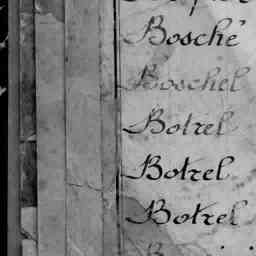 Bosché
Boschel
Botrel
Botrel
Botrel